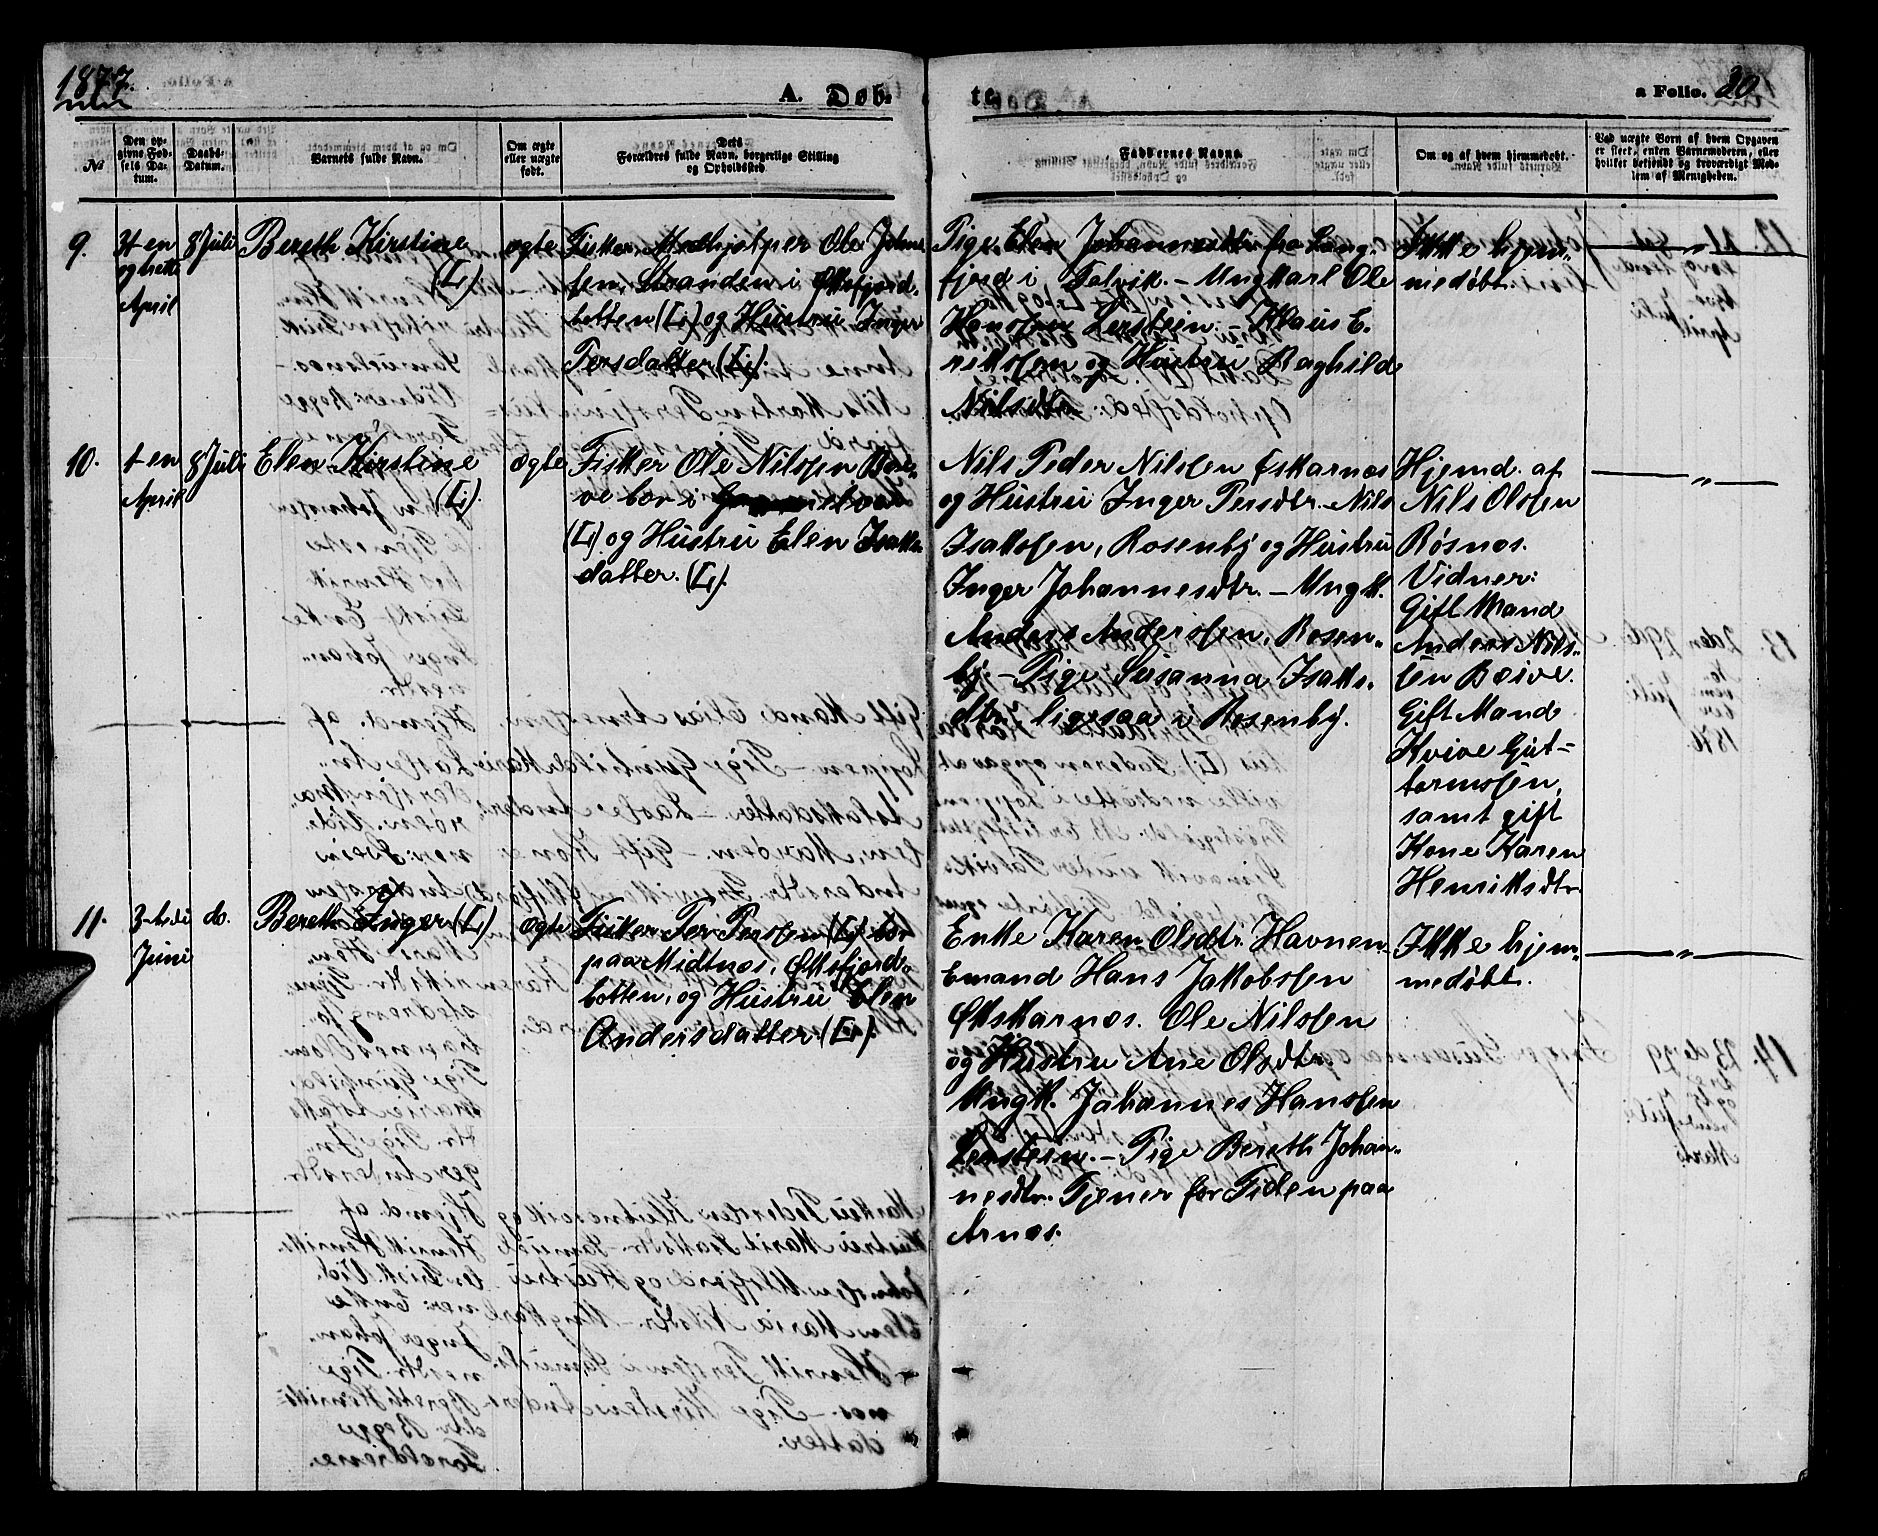 1877.
A. Døb-
te.
a Folio. 20
No
Den op-
givne Fød-
sels Da-
tum.
Daabs-
Datum.
Barnets fulde Navn.
Om ægte
eller uægte
født.
Dets
Forældres fulde Navn, borgerlige Stilling
og Opholdssted.
Faddernes Navne.
Om og af hvem hjemmedøbt.
Ved uægte Børn af hvem Opgaven
er skeet, enten Barnemoderen, eller
hvilket bekjendt og troværdigt Med-
lem af Menigheden.
9.
April
8 Juli
Bereth Kirstine
(L.)
ægte
Fisker, Medhjelper Ole Johns
sen, Stranden i Øksfjord-
botten (L.) og Hustru Inger
Persdatter (L.).
Pige Elen Johannesdtr. fra Lang-
fjord i Talvik. - Ungkarl Ole
Hansen Lerstein. - Klaus E-
riksen og Hustru Raghild
Nilsdtr.
Ikke hjem-
medøbt.
"
10.
1 en
April
8 Juli
Elen Kirstine
(L.)
ægte
Fisker Ole Nilssen Bæi-
ve bor i
(L.) og Hustru Elen Isaks-
datter. (L.).
Nils Peder Nilssen Øskarnæs
og Hustru Inger Persdtr. - Nils
Isaksen, Rosenbj og Hustru
Inger Johannesdtr. - Ungk.
Anders Anderssen, Rosen-
bj. - Pige Susanna Isaks-
dtr. ligesaa i Rosenbj.
Hjemd. af
Nils Olssen
Røsnæs.
Vidner:
Gift Mand
Anders Nils-
sen Bæive.
Gift Mand
Kvive Gut-
tormssen,
samt gift
Kone Karen
Henriksdtr.
"
11.
3-tredi
Juni
do.
Bereth Inger (L.)
ægte
Fisker Per Perssen (L.) bor
paa Midtnæs, Øksfjord-
botten, og Hustru Elen
Andersdatter (L.).
Enke Karen Olsdtr. Havnen.
Emand Hans Jakobssen
Økskarnæs. Ole Nilssen
og Hustru Ane Olsdtr.
Ungk. Johannes Hanssen
Lerstein. - Pige Bereth Johan-
nesdtr. Tjener for Tiden paa
Arnæs.
Ikke hjem-
medøbt.
"